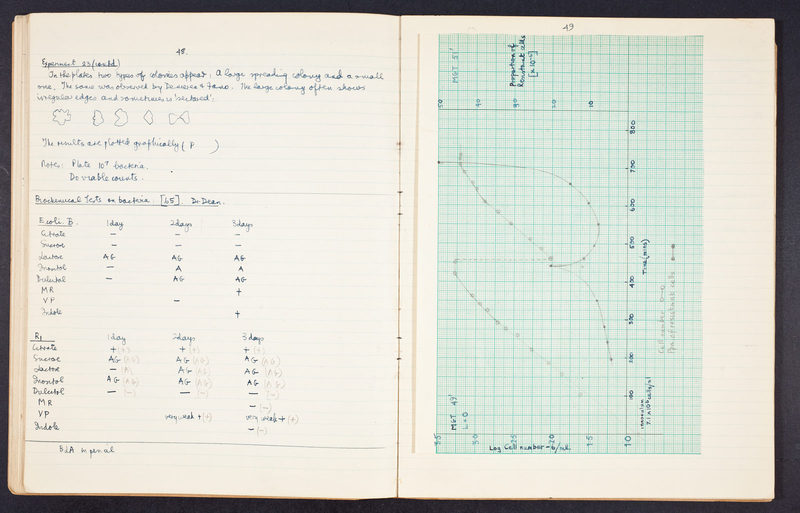 48.
Experiment 23 (contd)
In the plates two types of colonies appear; a large spreading colony and a small
one. The same was observed by Demerec + Fano. The large colony often shows
irregular edges and sometimes is 'sectored'.
The results are plotted graphically ( P )
Notes: Plate 10⁷ bacteria.
Do viable counts.
Biochemical Tests on bacteria [65] Dr Dean.
E coli. B. 1 day 2 days 3 days
Citrate — — —
Sucrose — — —
Lactose AG AG AG
Inositol — A A
Dulcitol — AG AG
MR +
VP —
Indole +
R₁ 1 day 2 days 3 days
Citrate + (+) + (+) + (+)
Sucrose AG (AG) AG (AG) AG (AG)
Lactose — (A) AG (AG) AG (AG)
Inositol AG (AG) AG (AG) AG (AG)
Dulcitol — (—) — (—) — (—)
MR — (—)
VP very weak + (+) very weak + (+)
Indole — (—)
in pencil
49
MGT 51'
Proportion of
Resistant cells
50 40 30 20 10
800
700
600
500
400
300
200
100
Time (mins)
Cell number o—o
Ppn of resistant cells
MGT 49'
L = 0
3.5 3.0 2.5 2.0 1.5 1.0
Log Cell number - 6/ml.